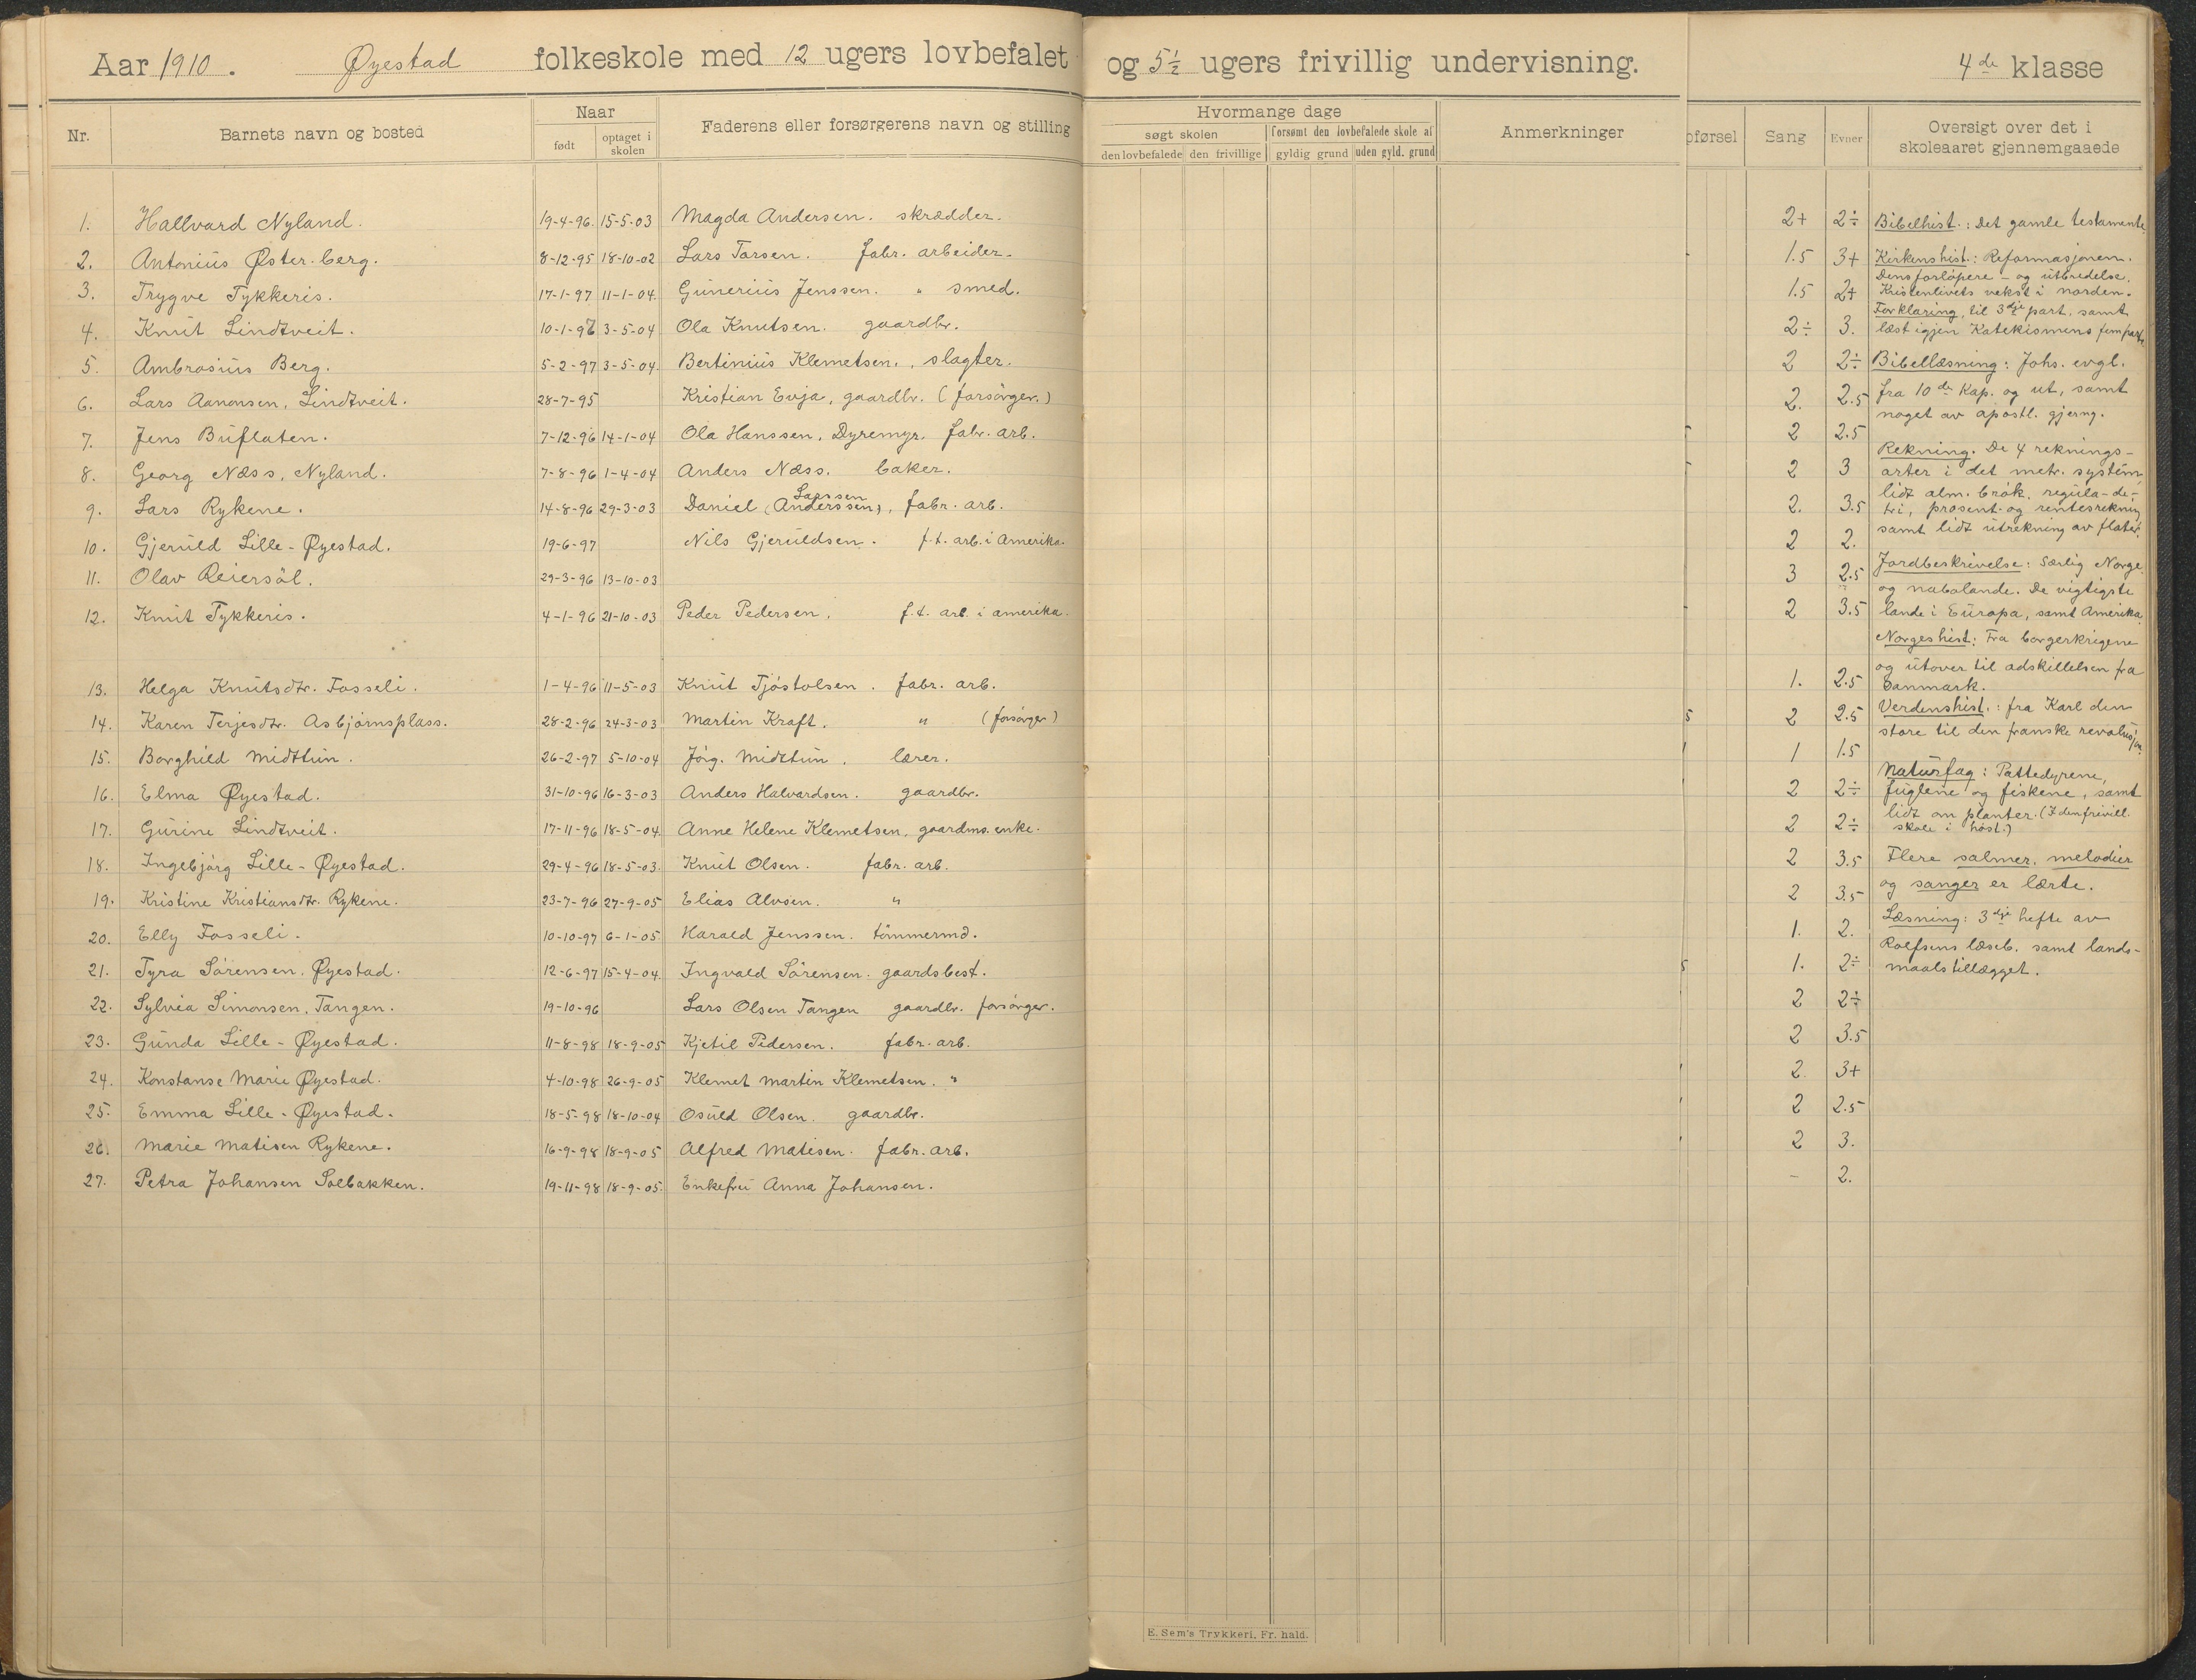 Aar 1910. Øyestad folkeskole med 12 ugers lovbefalet og 5 1/2 ugers frivillig undervisning. 4de klasse
Nr. Barnets navn og bosted Naar født optaget i skolen Faderens eller forsørgerens navn og stilling
Hvormange dage søgt skolen forsømt den lovbefalede skole af Anmerkninger
den lovbefalede den frivillige gyldig grund uden gyld. grund
pførsel Sang Evner Oversigt over det i skoleaaret gjennemgaaede
1. Hallvard Nyland. 19-4-96. 15-5-03 Magda Andersen. skrædder. 2+ 2÷
2. Antonius Øster-berg. 8-12-95 18-10-02 Lars Tarsen. fabr. arbeider. 1.5 3+
3. Trygve Tykkeris. 17-1-97 11-1-04. Gunerius Jenssen. " smed. 1.5 2+
4. Knut Lindtveit. 10-1-97 3-5-04 Ola Knutsen. gaardbr. 2÷ 3.
5. Ambrosius Berg. 5-2-97 3-5-04. Bertinius Klemetsen., slagter. 2 2÷
6. Lars Aanonsen, Lindtveit. 28-7-95 Kristian Evja, gaardbr. (forsørger.) 2. 2.5
7. Jens Buflaten. 7-12-96 14-1-04 Ola Hanssen, Dyremyr. fabr. arb. 2 2.5
8. Georg Næss, Nyland. 7-8-96 1-4-04 Anders Næss. baker. 2 3
9. Lars Rykene. 14-8-96 29-3-03 Daniel (Anderssen) Larssen, fabr. arb. 2. 3.5
10. Gjeruld Lille-Øyestad. 19-6-97 Nils Gjeruldsen. f.t. arb. i Amerika. 2 2.
11. Olav Reiersøl. 29-3-96 13-10-03 3 2.5
12. Knut Tykkeris. 4-1-96 21-10-03 Peder Pedersen. f.t. arb. i amerika. 2 3.5
13. Helga Knutsdtr. Fosseli. 1-4-96 11-5-03 Knut Tjøstolsen. fabr. arb. 1. 2.5
14. Karen Terjesdtr. Asbjørnsplass. 28-2-96 24-3-03 Martin Kraft. " (forsørger) 2 2.5
15. Borghild Midttun. 26-2-97 5-10-04 Jørg. Midttun. lærer. 1 1.5
16. Elma Øyestad. 31-10-96 16-3-03 Anders Halvardsen. gaardbr. 2 2÷
17. Gurine Lindtveit. 17-11-96 18-5-04. Anne Helene Klemetsen, gaardms. enke. 2 2÷
18. Ingebjørg Lille-Øyestad. 29-4-96 18-5-03. Knut Olsen. fabr. arb. 2 3.5
19. Kristine Kristiansdtr. Rykene. 23-7-96 27-9-05 Elias Alvsen. " 2 3.5
20. Elly Fosseli. 10-10-97 6-1-05 Harald Jenssen. tømmermd. 1. 2.
21. Tyra Sørensen. Øyestad. 12-6-97 15-4-04. Ingvald Sørensen. gaardsbest. 1. 2÷
22. Sylvia Simonsen, Tangen. 19-10-96 Lars Olsen Tangen gaardbr. forsørger. 2 2÷
23. Gunda Lille-Øyestad. 11-8-98 18-9-05 Kjetil Pedersen. fabr. arb. 2 3.5
24. Konstanse Marie Øyestad. 4-10-98 26-9-05 Klemet Martin Klemetsen. " 2 3+
25. Emma Lille-Øyestad. 18-5-98 18-10-04 Osuld Olsen. gaardbr. 2 2.5
26. Marie Matisen Rykene. 16-9-98 18-9-05 Alfred Matisen. fabr. arb. 2 3.
27. Petra Johansen Solbakken. 19-11-98 18-9-05. Enkefru Anna Johansen. - 2.
Bibelhist.: Det gamle testamente.
Kirkenshist.: Reformasjonen.
Dens forløpere - og utbredelse.
Kristenlivets vekst i norden.
Forklaring, til 3dje part, samt
læst igjen Katekismens fem parter
Bibellæsning: Johs. evgl.
fra 10de Kap. og ut, samt
noget av apostl. gjerng.
Rekning. De 4 reknings-
arter i det metr. system,
lidt alm. brøk, regula-de-
tri, prosent- og rentesrekning
samt lidt utrekning av flater.
Jordbeskrivelse: Særlig Norge
og nabolande. De vigtigste
lande i Europa, samt Amerika.
Norgeshist: Fra borgerkrigene
og utover til adskillelsen fra
Danmark.
Verdenshist.: fra Karl den
store til den franske revolusjon.
Naturfag: Pattedyrene,
fuglene og fiskene, samt
lidt om planter. (I den frivill.
skole i høst.)
Flere salmer, melodier
og sanger er lærte.
Læsning: 3dje hefte av
Rolfsens læseb. samt lands-
maalstillægget.
E. Sem's Trykkeri, Fr. hald.